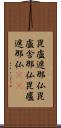 毘盧遮那仏毘
盧舎那仏毘盧
遮那仏